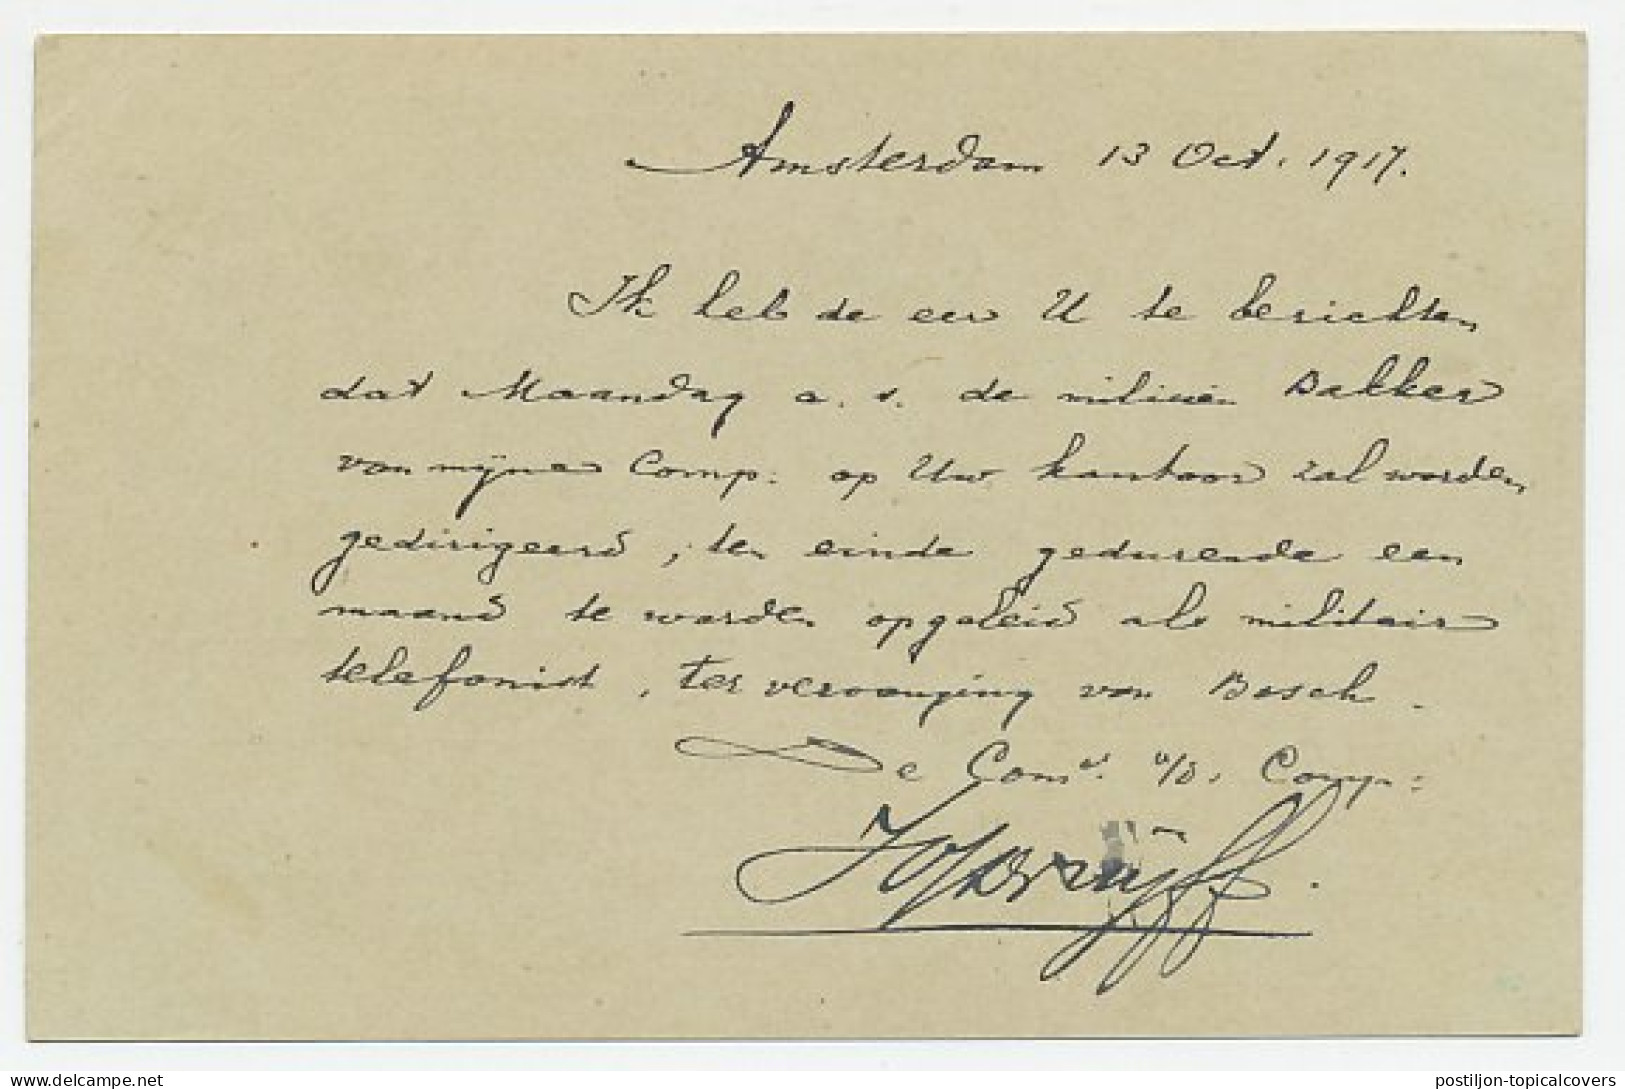 Amsterdam 13 Oct. 1917.
Ik heb de eer U te berichten
dat Maandag a.s. de milicien Bakker
van mijne Comp: op Uw kantoor zal worden
gedirigeerd, ten einde gedurende een
maand te worden opgeleid als militair
telefonist, ter vervanging van Bosch.
De Comdt. v/d. Comp:
delcampe.net
postiljon-topicalcovers